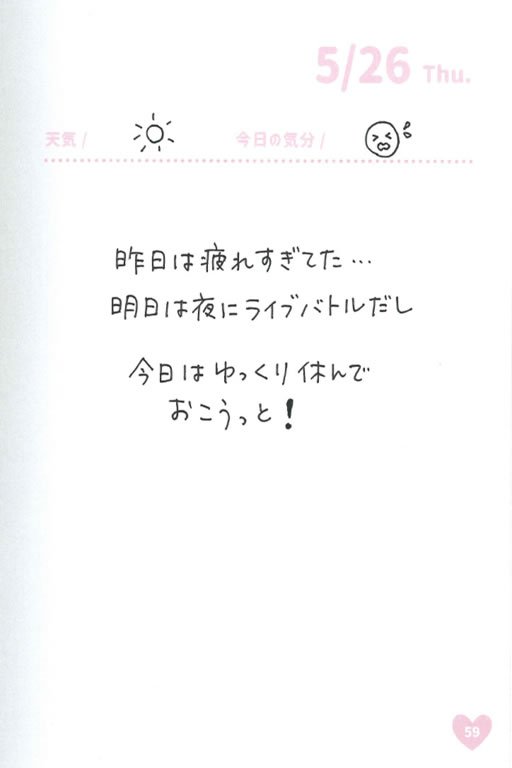 5/26 Thu.
天気/ 今日の気分/
昨日は疲れすぎてた…
明日は夜にライブバトルだし
今日はゆっくり休んで
おこうっと!
59